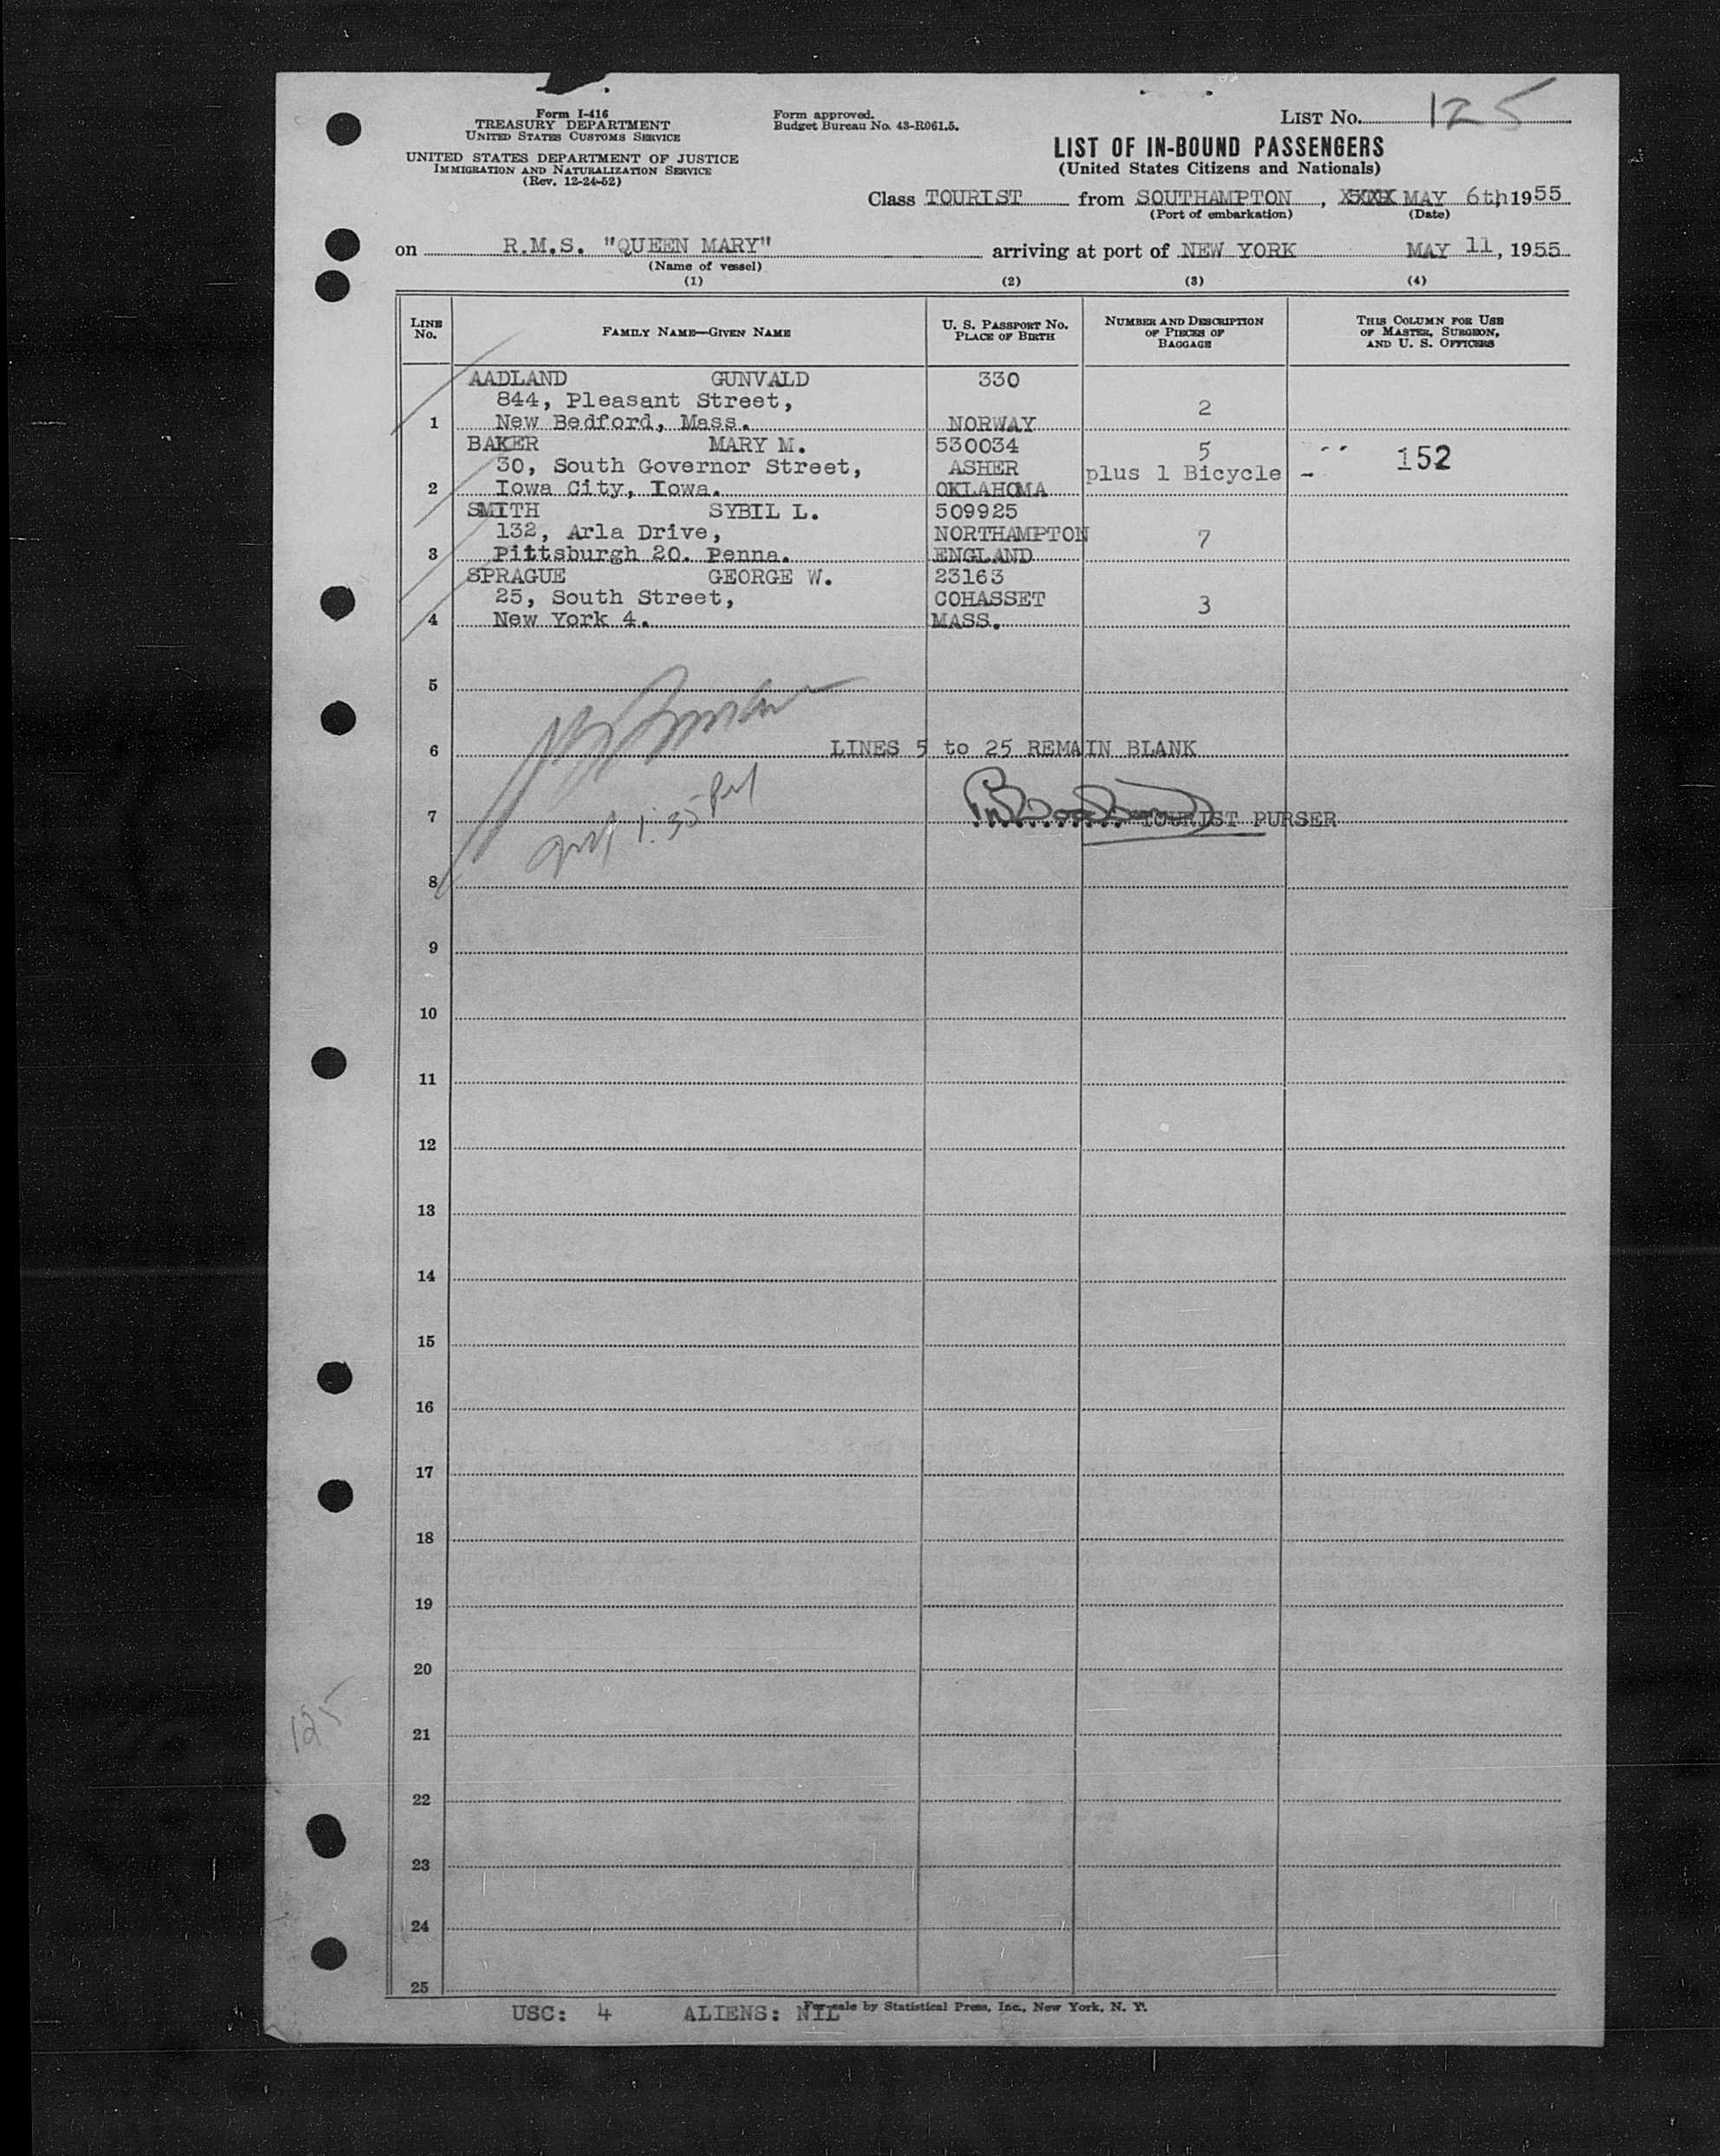 Form I-416
TREASURY DEPARTMENT
UNITED STATES CUSTOMS SERVICE
UNITED STATES DEPARTMENT OF JUSTICE
IMMIGRATION AND NATURALIZATION SERVICE
(Rev. 12-24-52)
Form approved.
Budget Bureau No. 43-R061.5.
LIST No. 125
LIST OF IN-BOUND PASSENGERS
(United States Citizens and Nationals)
Class TOURIST from SOUTHAMPTON, MAY 6th, 1955
(Port of embarkation) (Date)
on R.M.S. "QUEEN MARY" arriving at port of NEW YORK MAY 11, 1955
(Name of vessel)
(1) (2) (3) (4)
LINE No. FAMILY NAME—GIVEN NAME U. S. PASSPORT No. PLACE OF BIRTH NUMBER AND DESCRIPTION OF PIECES OF BAGGAGE THIS COLUMN FOR USE OF MASTER, SURGEON, AND U. S. OFFICERS
AADLAND GUNVALD 330
844, Pleasant Street, 2
1 New Bedford, Mass. NORWAY
BAKER MARY M. 530034 5 152
30, South Governor Street, ASHER plus 1 Bicycle -
2 Iowa City, Iowa. OKLAHOMA
SMITH SYBIL L. 509925
132, Arla Drive, NORTHAMPTON 7
3 Pittsburgh 20. Penna. ENGLAND
SPRAGUE GEORGE W. 23163
25, South Street, COHASSET 3
4 New York 4. MASS.
5
6 LINES 5 to 25 REMAIN BLANK
7 1:35 PM TOURIST PURSER
8
9
10
11
12
13
14
15
16
17
18
19
20
21
125
22
23
24
25
USC: 4 ALIENS: NIL
For sale by Statistical Press, Inc., New York, N. Y.